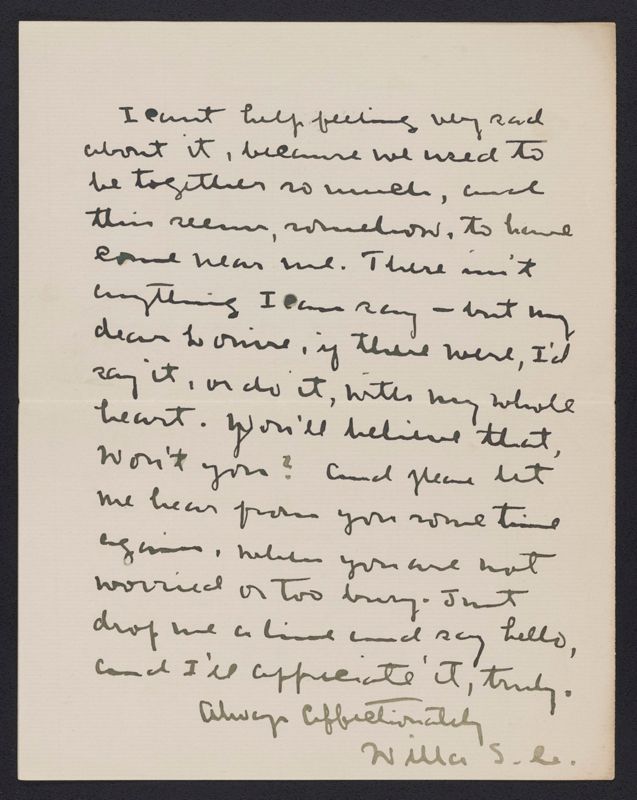 I can't help feeling very sad
about it, because we used to
be together so much, and
this seems, somehow, to have
come near me. There isn't
anything I can say – but my
dear Louise, if there were, I'd
say it, or do it, with my whole
heart. You'll believe that,
Won't you? And please let
me hear from you some time
again, when you are not
worried or too busy. Just
drop me a line and say hello,
and I'll appreciate it, truly.
Always Affectionately
Willa S. C.